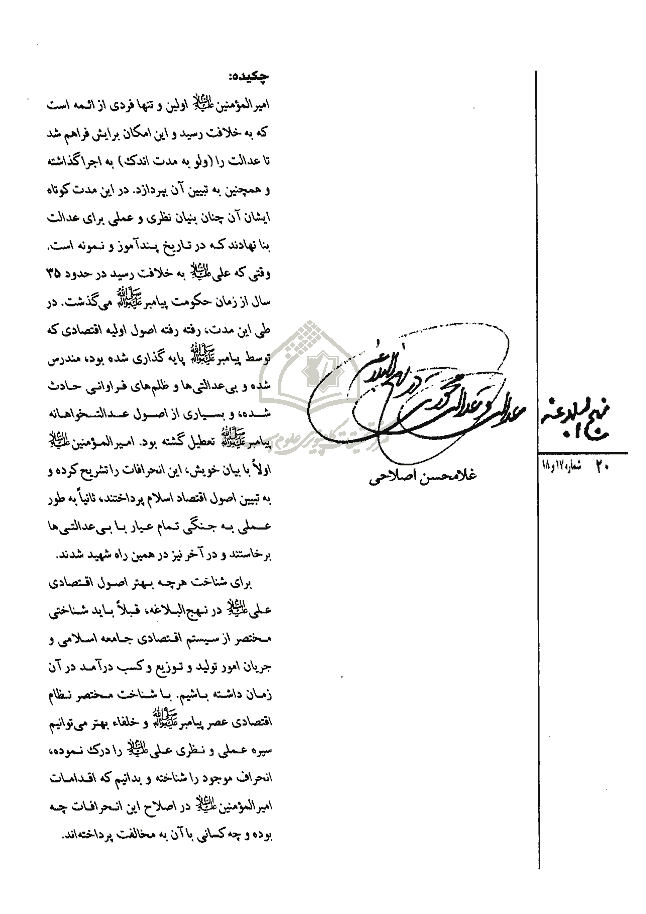 چکیده:
امیرالمؤمنین علیه‌السلام اولین و تنها فردی از ائمه است
که به خلافت رسید و این امکان برایش فراهم شد
تا عدالت را (ولو به مدت اندک) به اجرا گذاشته
و همچنین به تبیین آن بپردازد. در این مدت کوتاه
ایشان آن چنان بنیان نظری و عملی برای عدالت
بنا نهادند که در تاریخ پندآموز و نمونه است.
وقتی که علی علیه‌السلام به خلافت رسید در حدود ۳۵
سال از زمان حکومت پیامبر ﷺ می‌گذشت. در
طی این مدت، رفته رفته اصول اولیه اقتصادی که
توسط پیامبر ﷺ پایه گذاری شده بود، مندرس
شده و بی‌عدالتی‌ها و ظلم‌های فراوانی حادث
شده، و بسیاری از اصول عدالتخواهانه
پیامبر ﷺ تعطیل گشته بود. امیرالمؤمنین علیه‌السلام
اولاً با بیان خویش، این انحرافات را تشریح کرده و
به تبیین اصول اقتصاد اسلام پرداختند، ثانیاً به طور
عملی به جنگی تمام عیار با بی‌عدالتی‌ها
برخاستند و در آخر نیز در همین راه شهید شدند.
برای شناخت هرچه بهتر اصول اقتصادی
علی علیه‌السلام در نهج‌البلاغه، قبلاً باید شناختی
مختصر از سیستم اقتصادی جامعه اسلامی و
جریان امور تولید و توزیع و کسب درآمد در آن
زمان داشته باشیم. با شناخت مختصر نظام
اقتصادی عصر پیامبر ﷺ و خلفاء بهتر می‌توانیم
سیره عملی و نظری علی علیه‌السلام را درک نموده،
انحراف موجود را شناخته و بدانیم که اقدامات
امیرالمؤمنین علیه‌السلام در اصلاح این انحرافات چه
بوده و چه کسانی با آن به مخالفت پرداخته‌اند.
عدالت و عدالت محوری در نهج البلاغه
غلامحسن اصلاحی
نهج البلاغه
۲۰ شماره ۱۷ و ۱۸